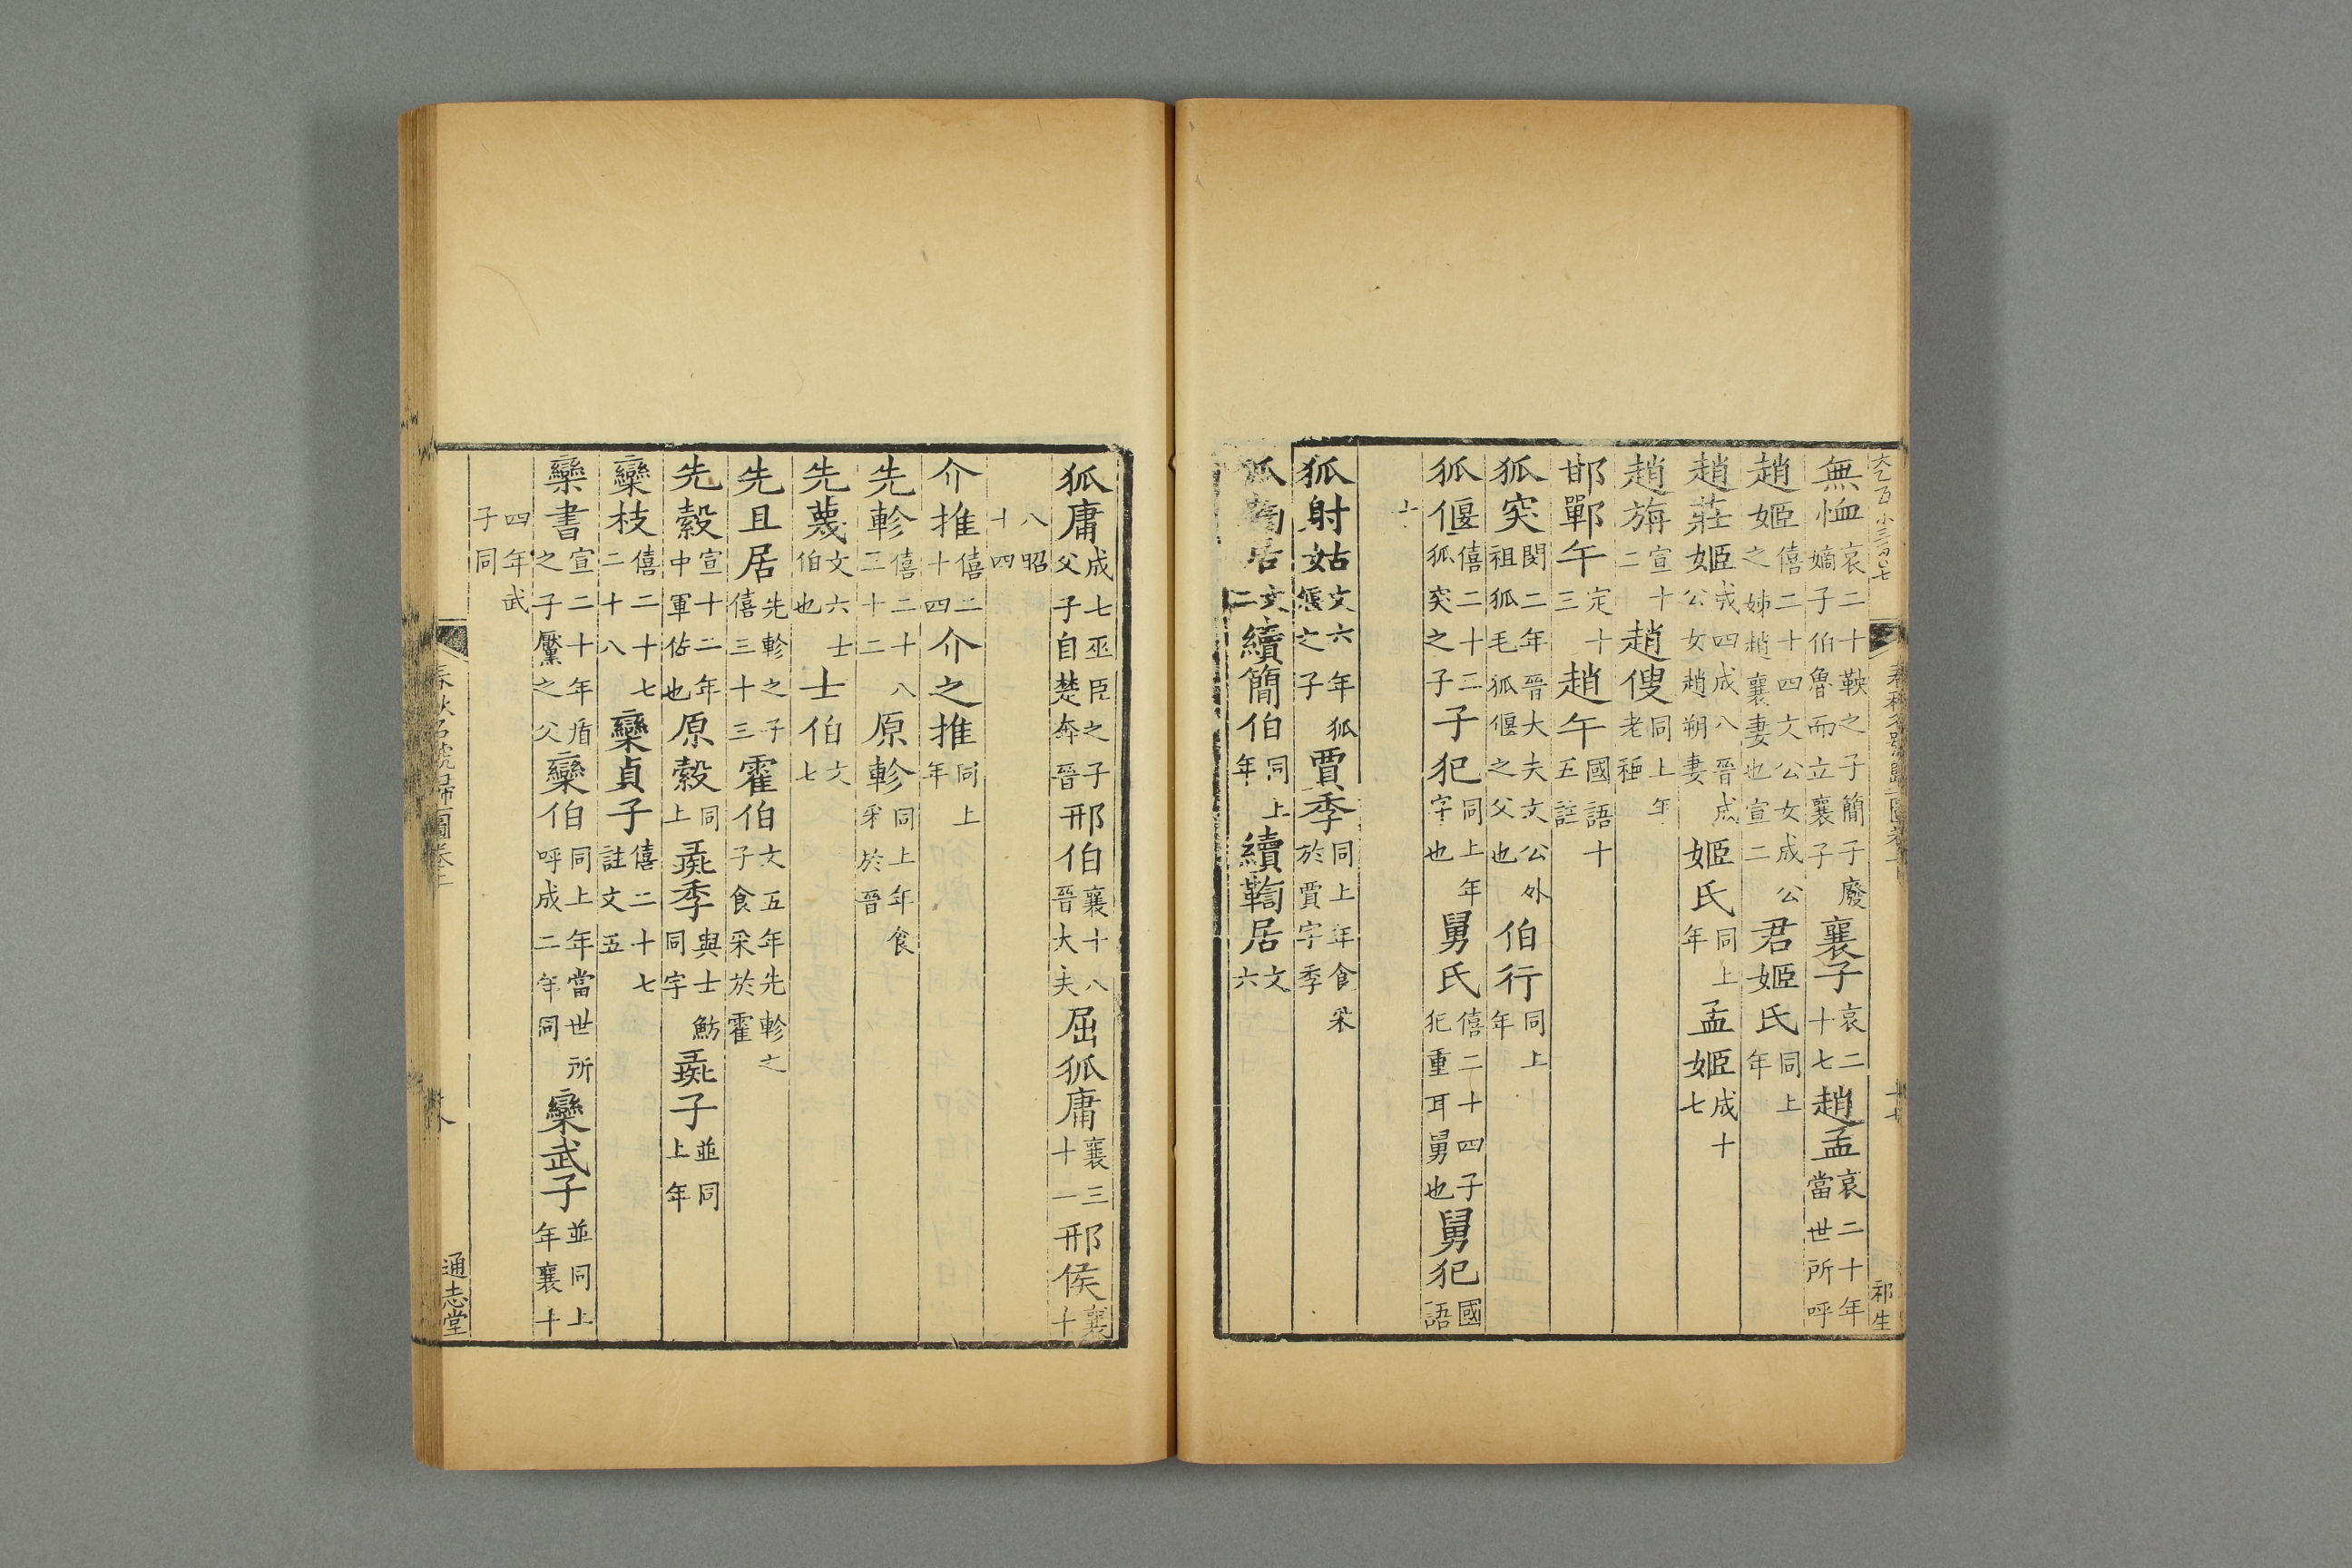 無恤哀二十鞅之子簡子廢嫡子伯魯而立襄子襄子哀二十七趙孟哀二十年當世所呼
趙姬僖二十四文公女成公之姊趙襄妻也宣二君姬氏同上年
趙莊姬成四成八晉成公女趙朔妻姬氏同上年孟姬成十七
趙旃宣十二趙傁同上年老稱
邯鄲午定十三趙午國語十五註
狐突閔二年晉大夫文公外祖狐毛狐偃之父也伯行同上年
狐偃僖二十二狐突之子子犯同上年字也舅氏僖二十四子犯重耳舅也舅犯國語
十
狐射姑文六年狐偃之子賈季同上年食采於賈字季
狐鞫居文二續簡伯同上年續鞫居文六
祁生
狐庸成七巫臣之子父子自楚奔晉邢伯襄十八晉大夫屈狐庸襄三十一邢侯襄十
八昭十四
介推僖二十四介之推同上年
先軫僖二十八三十二原軫同上年食采於晉
先蔑文六士伯也士伯文七
先且居先軫之子僖三十三霍伯文五年先軫之子食采於霍
先縠宣十二年中軍佐也原縠同上彘季與士魴同字彘子並同上年
欒枝僖二十七二十八欒貞子僖二十七註文五
欒書宣二十年盾之子黶之父欒伯同上年當世所呼成二年同欒武子並同上年襄十
四年武子同
春秋名號歸一圖卷上
通志堂